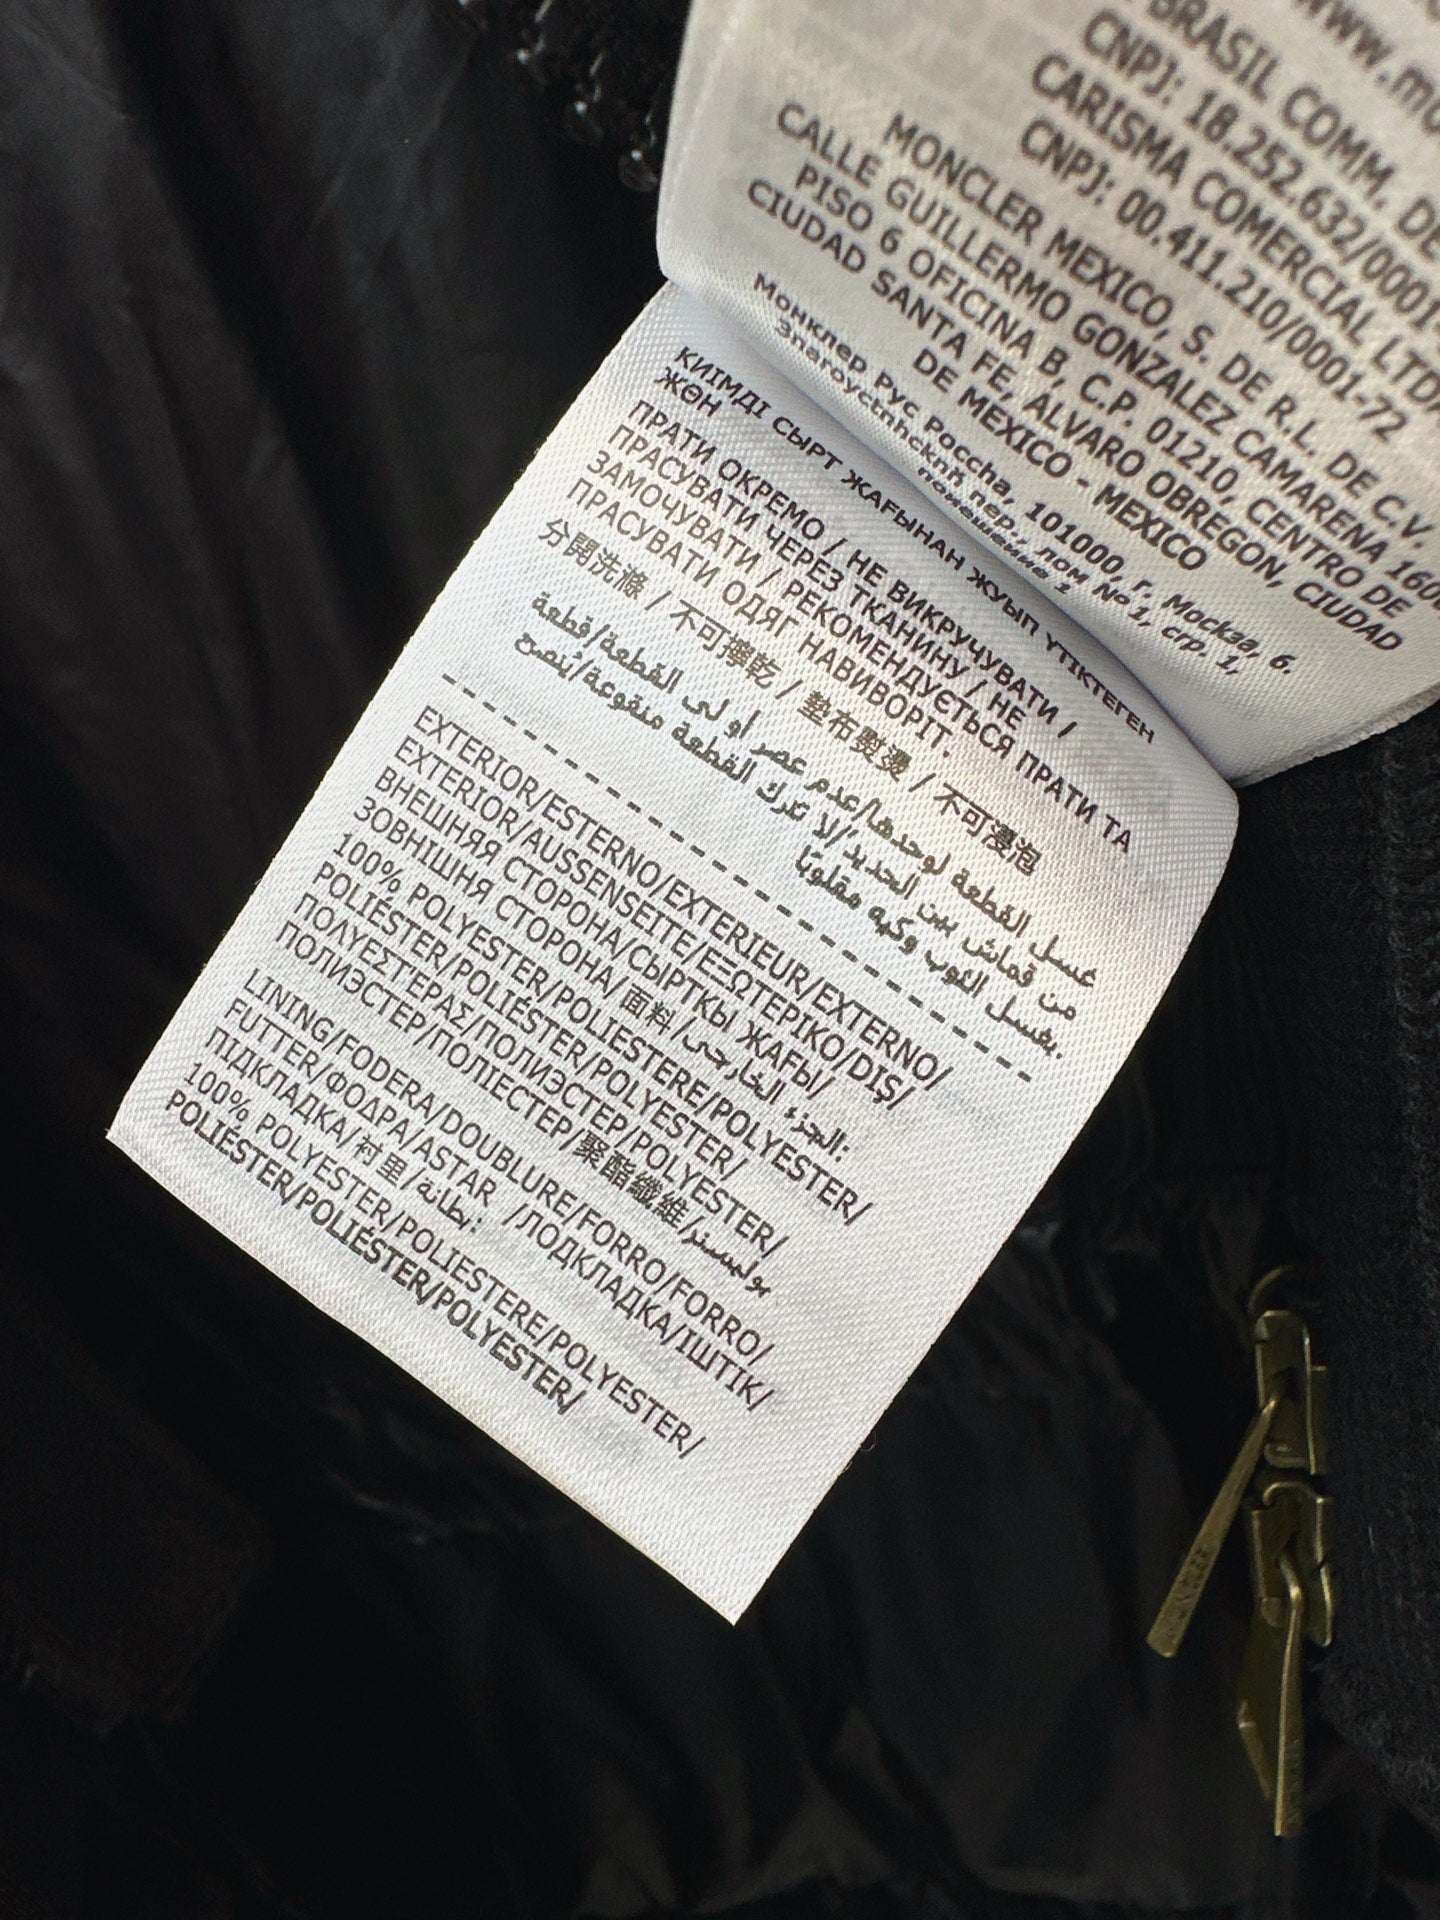 www.mo
BRASIL COMM. DE
CNPJ: 18.252.632/0001-
CARISMA COMERCIAL LTDA
CNPJ: 00.411.210/0001-72
MONCLER MEXICO, S. DE R.L. DE C.V.
CALLE GUILLERMO GONZALEZ CAMARENA 1600
PISO 6 OFICINA B, C.P. 01210, CENTRO DE
CIUDAD SANTA FE, ALVARO OBREGON, CIUDAD
DE MEXICO - MEXICO
Монклер Рус 101000, г. Москва, 6.
пер., дом №1, стр. 1,
помещение 1
КИІМДІ СЫРТ ЖАҒЫНАН ЖУЫП ҮТІКТЕГЕН
ЖӨН
ПРАТИ ОКРЕМО / НЕ ВИКРУЧУВАТИ /
ПРАСУВАТИ ЧЕРЕЗ ТКАНИНУ / НЕ
ЗАМОЧУВАТИ / РЕКОМЕНДУЄТЬСЯ ПРАТИ ТА
ПРАСУВАТИ ОДЯГ НАВИВОРІТ.
分開洗滌 / 不可擰乾 / 墊布熨燙 / 不可浸泡
غسل القطعة لوحدها/عدم عصر أو لى القطعة/قطعة
من قماش بين الحديد/لا تترك القطعة منقوعة/يُنصح
بغسل الثوب وكيه مقلوبًا.
EXTERIOR/ESTERNO/EXTERIEUR/EXTERNO/
EXTERIOR/AUSSENSEITE/ΕΞΩΤΕΡΙΚΟ/DIŞ/
ВНЕШНЯЯ СТОРОНА/СЫРТҚЫ ЖАҒЫ/
ЗОВНІШНЯ СТОРОНА/面料/الجزء الخارجى:
100% POLYESTER/POLIESTERE/POLYESTER/
POLIÉSTER/POLIÉSTER/POLYESTER/
ΠΟΛΥΕΣΤΈΡΑΣ/ПОЛИЭСТЕР/POLYESTER/
ПОЛИЭСТЕР/ПОЛІЕСТЕР/聚酯纖維/بوليستر
LINING/FODERA/DOUBLURE/FORRO/FORRO/
FUTTER/ΦΟΔΡΑ/ASTAR /ПОДКЛАДКА/ІШТІК/
ПІДКЛАДКА/衬里/بطانة:
100% POLYESTER/POLIESTERE/POLYESTER/
POLIÉSTER/POLIÉSTER/POLYESTER/